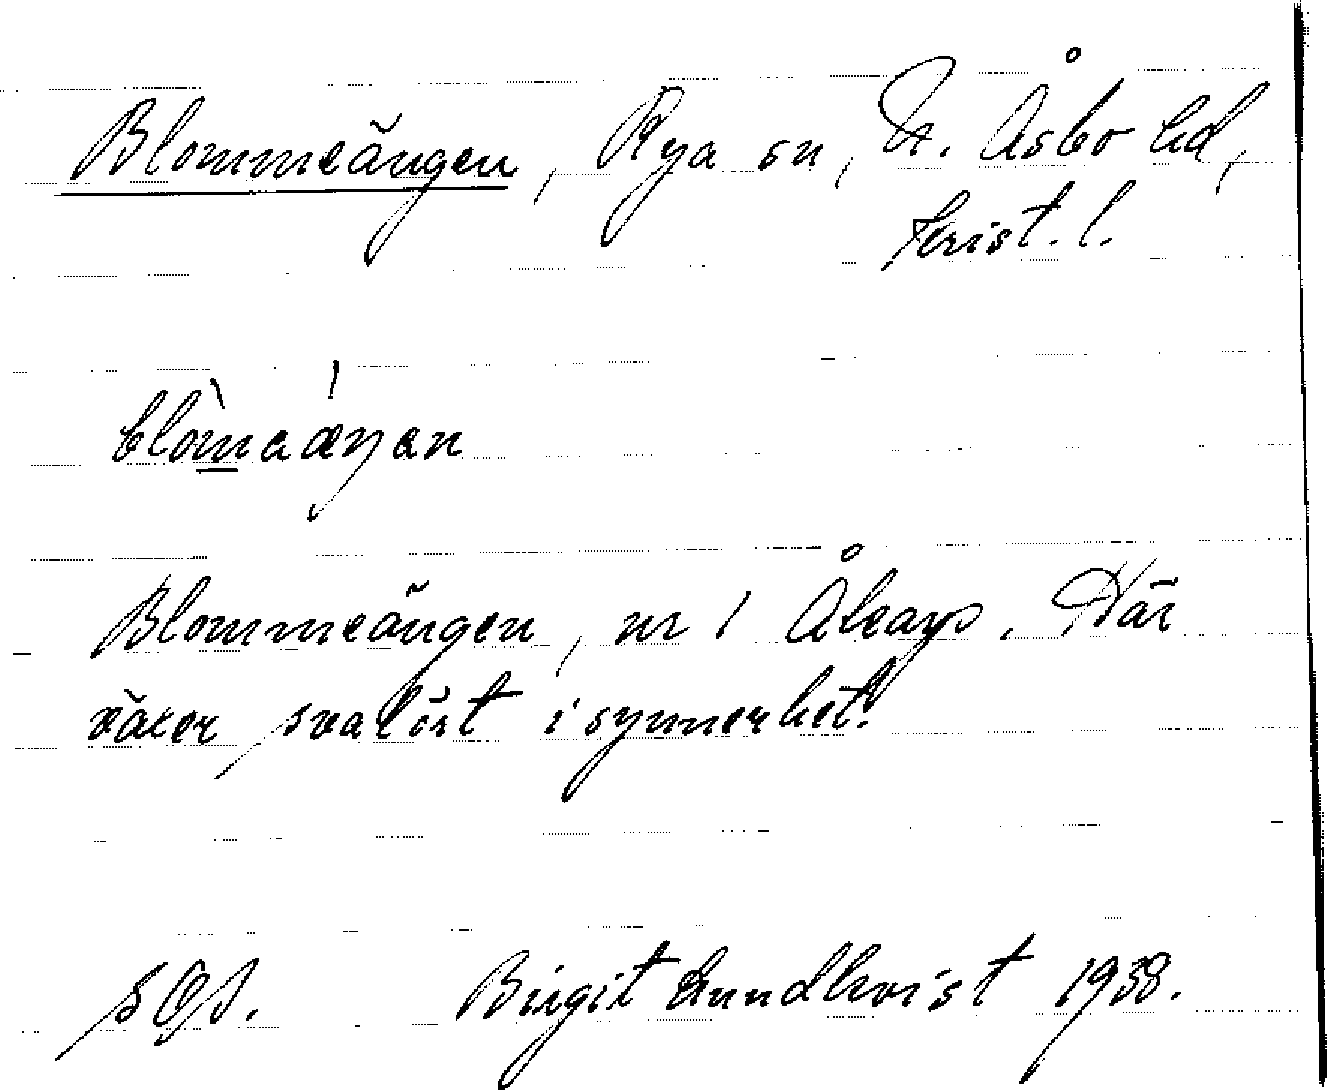 Blommeängen, Rya sn, N. Åsbo hd,
Krist. l.
blòmaáŋan
Blommeängen, nr 1 Åkarp. Här
växer svalört i synnerhet.
Birgit Lundkvist 1938.